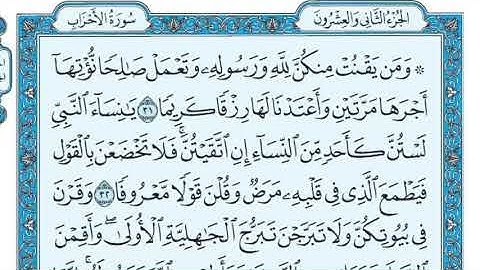 سُورَةُ الأَحْزَابِ
الجُزْءُ الثَّانِى وَالعِشْرُونَ
۞ وَمَن يَقْنُتْ مِنكُنَّ لِلَّهِ وَرَسُولِهِۦ وَتَعْمَلْ صَٰلِحًا نُّؤْتِهَآ
أَجْرَهَا مَرَّتَيْنِ وَأَعْتَدْنَا لَهَا رِزْقًا كَرِيمًا ۝٣١ يَٰنِسَآءَ ٱلنَّبِىِّ
لَسْتُنَّ كَأَحَدٍ مِّنَ ٱلنِّسَآءِ إِنِ ٱتَّقَيْتُنَّ ۚ فَلَا تَخْضَعْنَ بِٱلْقَوْلِ
فَيَطْمَعَ ٱلَّذِى فِى قَلْبِهِۦ مَرَضٌ وَقُلْنَ قَوْلًا مَّعْرُوفًا ۝٣٢ وَقَرْنَ
فِى بُيُوتِكُنَّ وَلَا تَبَرَّجْنَ تَبَرُّجَ ٱلْجَٰهِلِيَّةِ ٱلْأُولَىٰ ۖ وَأَقِمْنَ